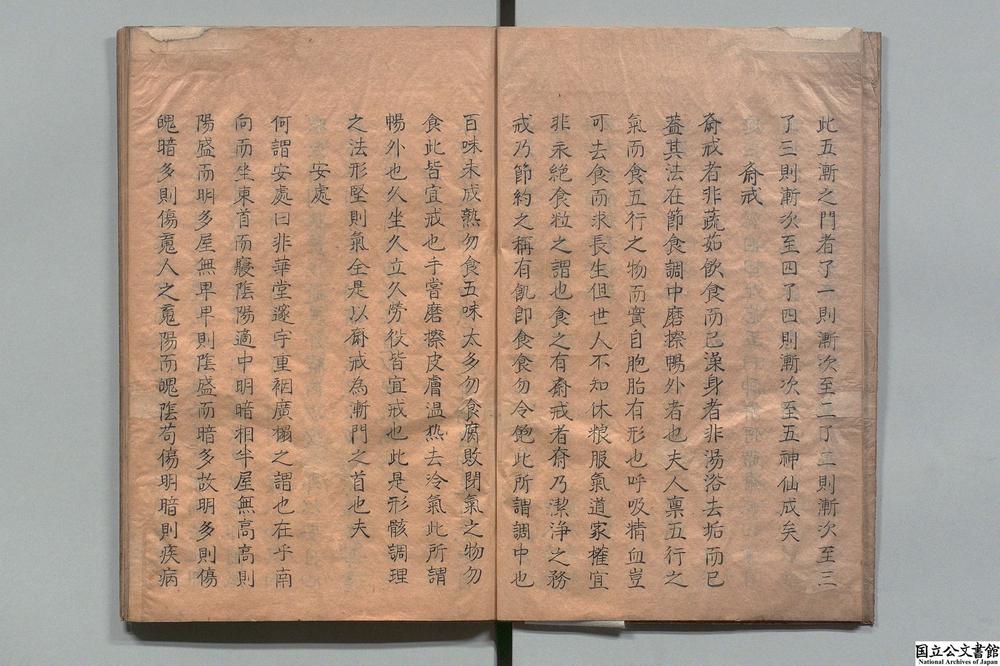 此五漸之門者了一則漸次至二了二則漸次至三
了三則漸次至四了四則漸次至五神仙成矣
齋戒
齋戒者非蔬茹飲食而已澡身者非湯浴去垢而已
蓋其法在節食調中磨擦暢外者也夫人禀五行之
氣而食五行之物而實自胞胎有形也呼吸精血豈
可去食而求長生但世人不知休粮服氣道家權宜
非永絕食粒之謂也食之有齋戒者齋乃潔淨之務
戒乃節約之稱有飢即食食勿令飽此所謂調中也
百味未成熟勿食五味太多勿食腐敗閉氣之物勿
食此皆宜戒也手嘗磨擦皮膚溫熱去冷氣此所謂
暢外也久坐久立久勞役皆宜戒也此是形骸調理
之法形堅則氣全是以齋戒為漸門之首也夫
安處
何謂安處曰非華堂邃宇重裀廣榻之謂也在乎南
向而坐東首而寢陰陽適中明暗相半屋無高高則
陽盛而明多屋無卑卑則陰盛而暗多故明多則傷
魄暗多則傷䰟人之䰟陽而魄陰苟傷明暗則疾病
国立公文書館
National Archives of Japan